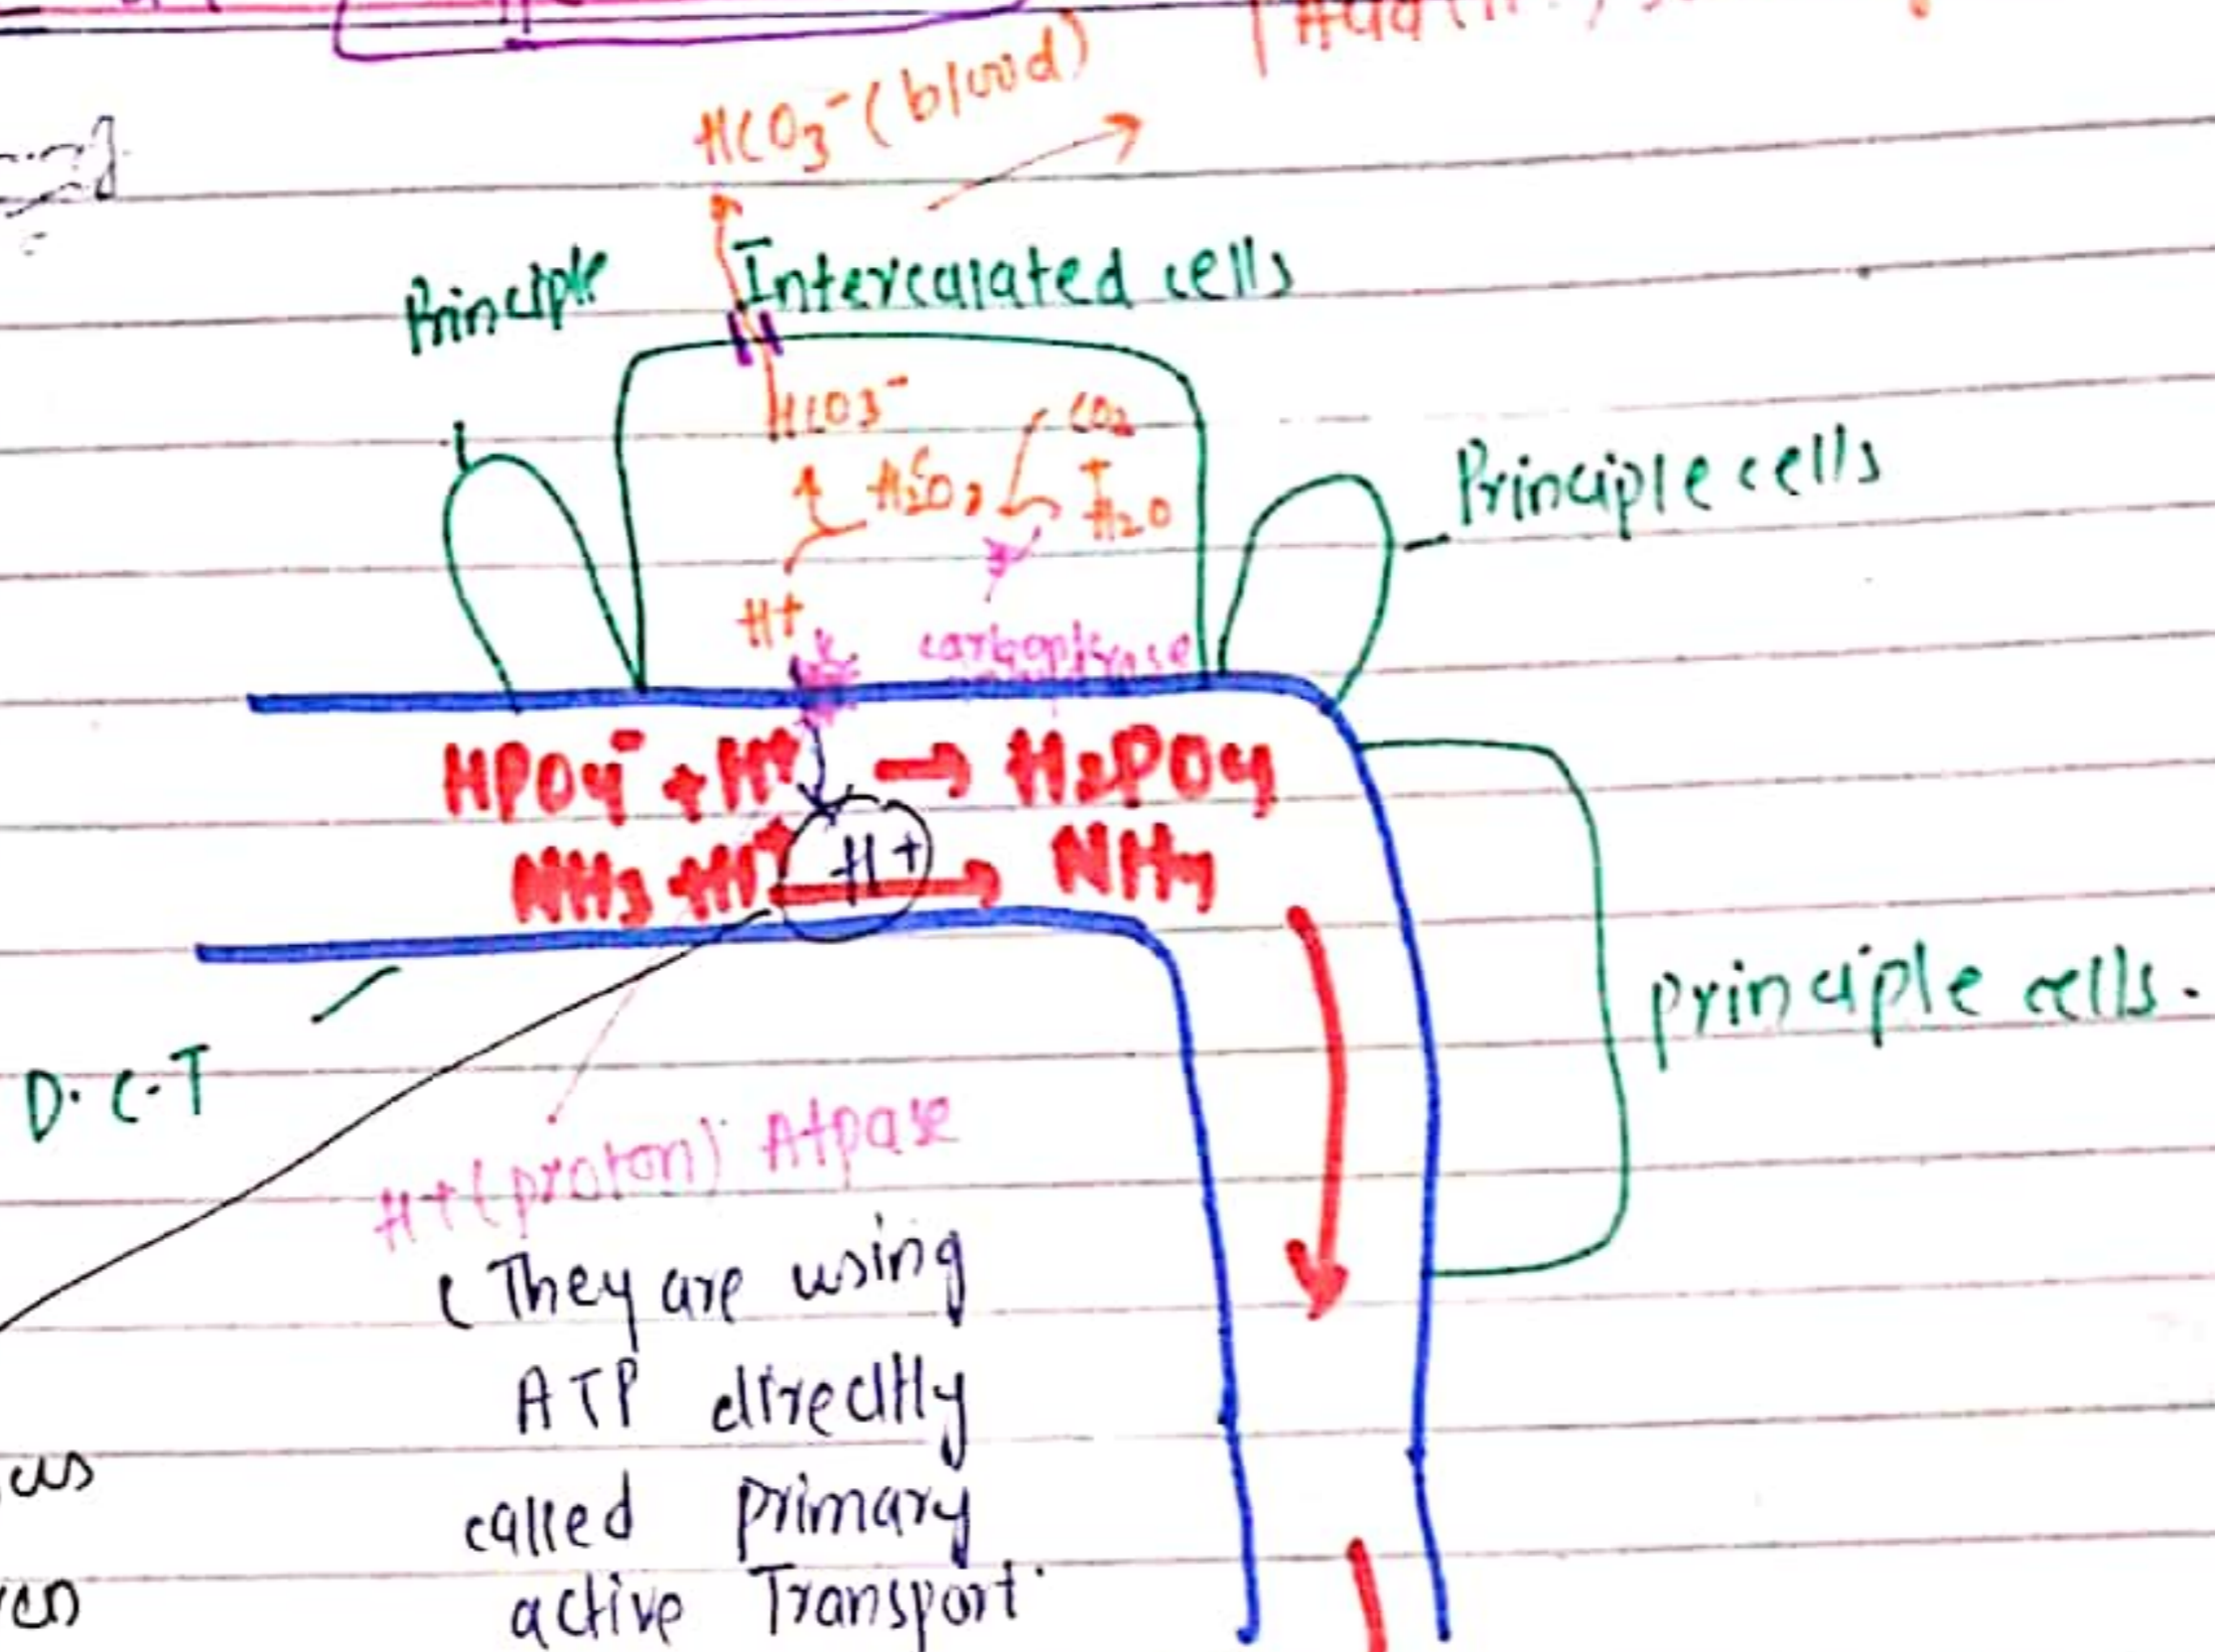 HCO3⁻ (blood)
Principle
Intercalated cells
HCO3⁻
CO2
+
H2O
H+
Principle cells
HPO4⁻ + H+ → H2PO4
NH3 + H+ → NH4
H+
principle cells.
D.C.T
H+ (proton) Atpase
( They are using
ATP directlly
called primary
active Transport.